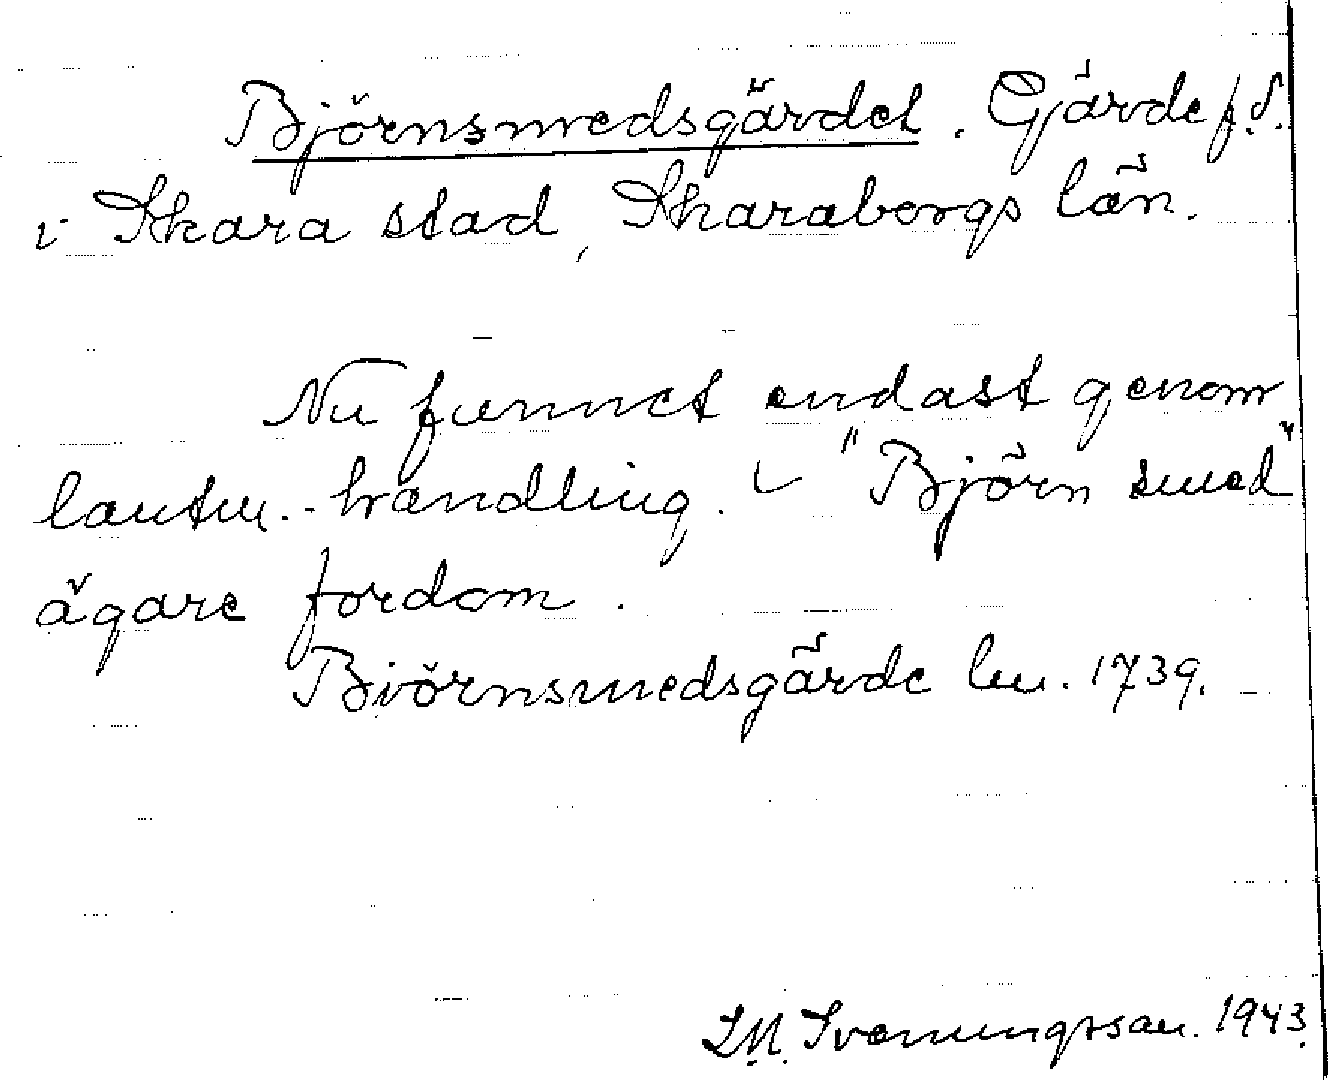 Björnsmedsgärdet. Gärde f.d.
i Skara stad, Skaraborgs län.
Nu funnet endast genom
lantm.-handling. "Björn smed"
ägare fordom.
Biörnsmedsgärde lm. 1739.
Svenungsson. 1943.